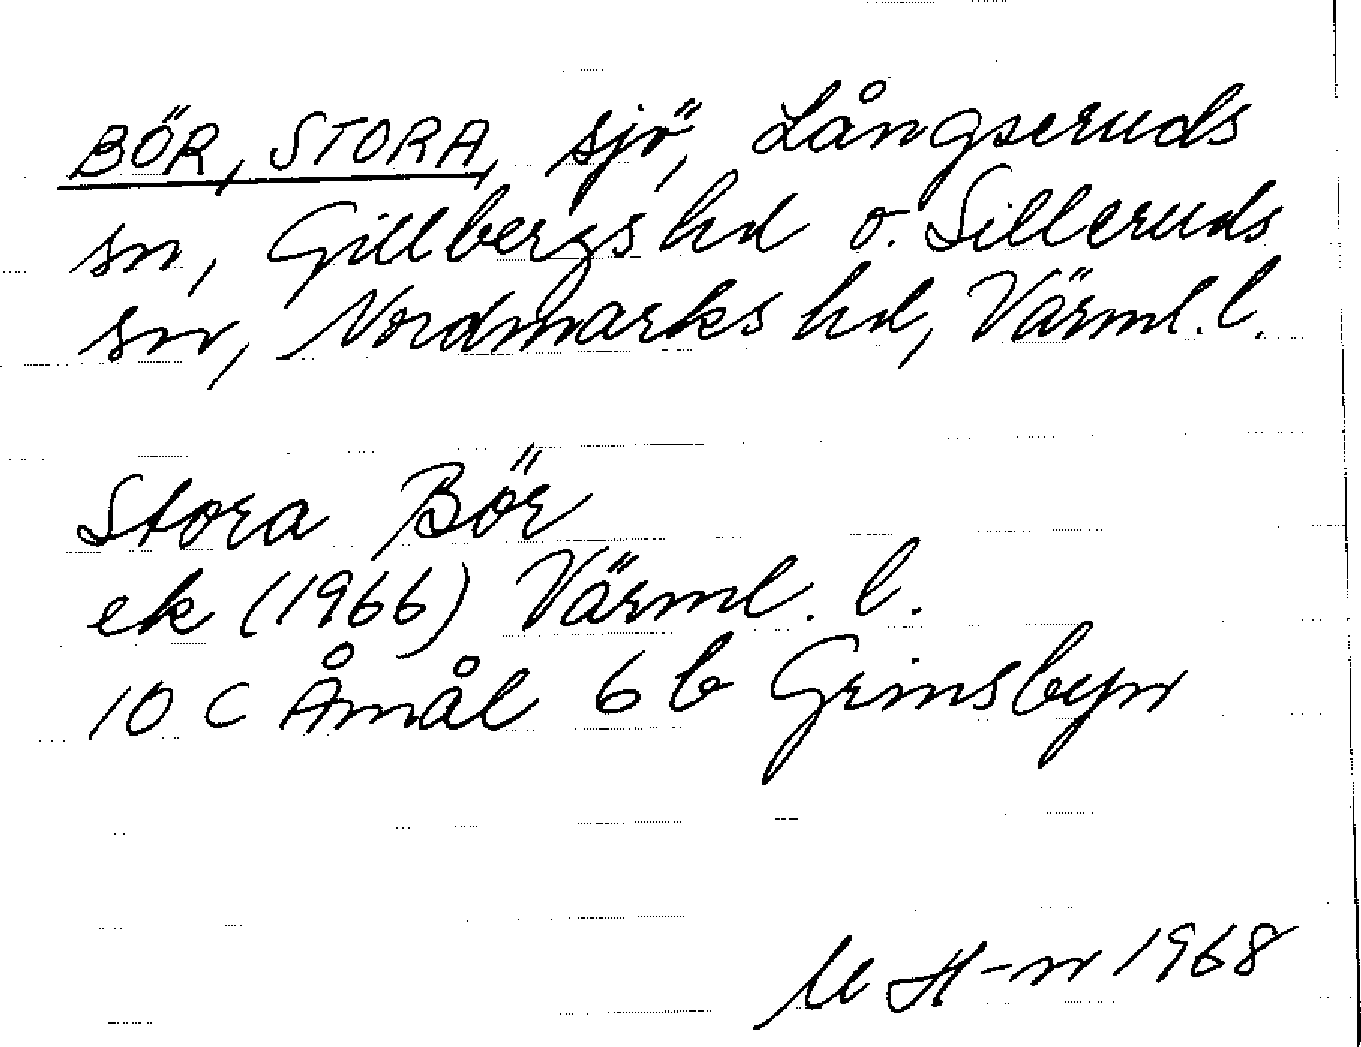 BÖR, STORA, sjö, Långseruds
sn, Gillbergs hd o. Silleruds
sn, Nordmarks hd, Värml. l.
Stora Bör
ek (1966) Värml. l.
10 C Åmål 6 b Grinsbyn
M H-n 1968